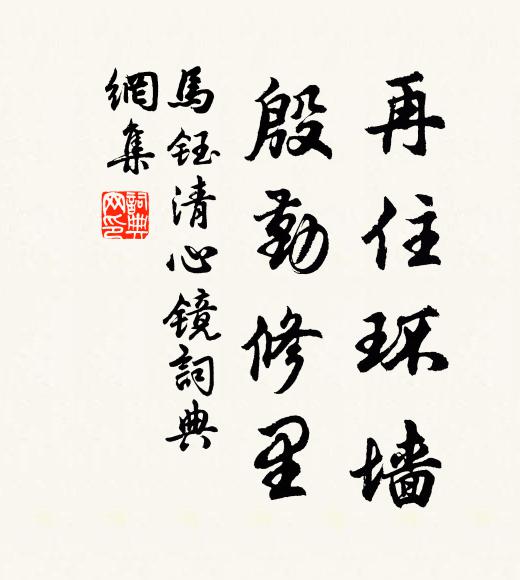 再住环墙
殷勤修里
馬鈺清心镜詞典
網集
詞典网印